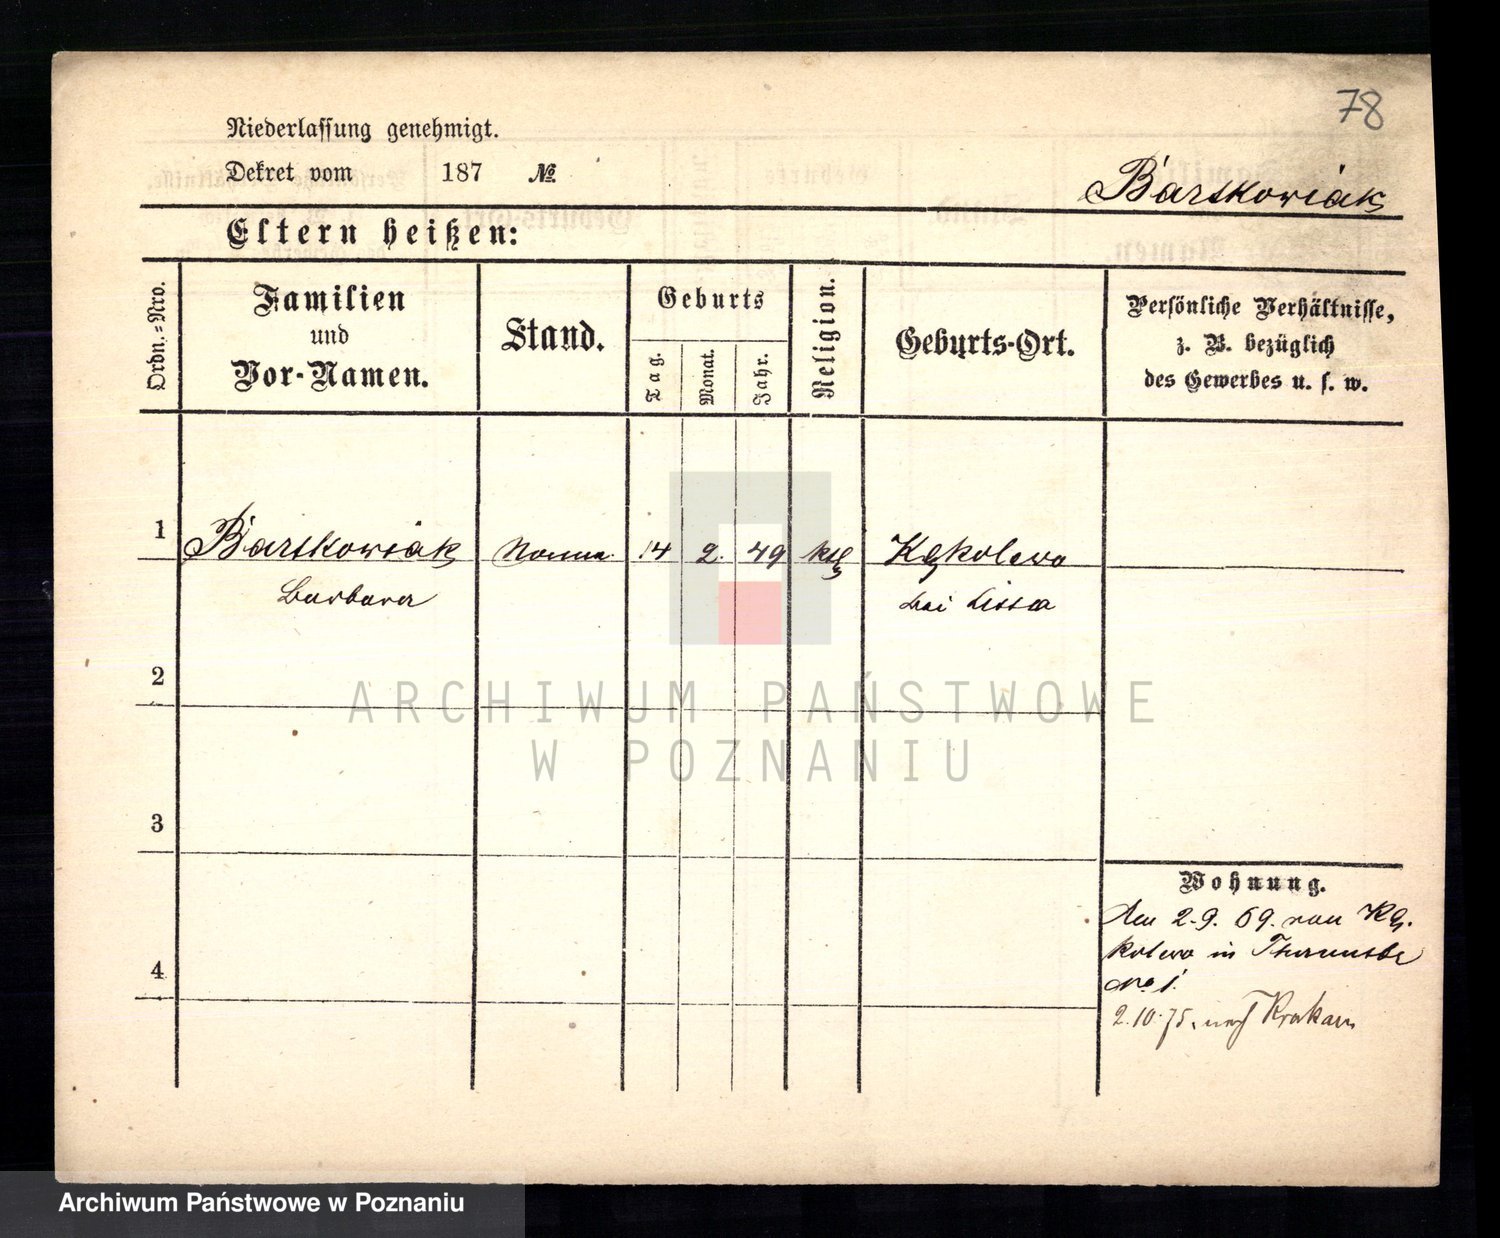 78
Niederlassung genehmigt.
Dekret vom 187 №
Bartkowiak
Eltern heißen:
Ordn.=Nro.
Familien
und
Vor-Namen.
Stand.
Geburts
Tag.
Monat.
Jahr.
Religion.
Geburts-Ort.
Persönliche Verhältnisse,
z. B. bezüglich
des Gewerbes u. s. w.
1 Bartkowiak Nonne 14 2. 49 kth Kąkolewo
Barbara bei Lissa
2
ARCHIWUM PAŃSTWOWE
W POZNANIU
3
Wohnung.
Am 2.9.69. von Ką.
kolewo in
4
No 1.
2.10.75. nach Krakau
Archiwum Państwowe w Poznaniu